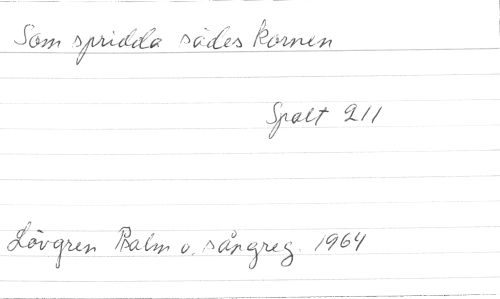 Som spridda sädes kornen
Spalt 211
Lövgren Psalm o. sångreg. 1964